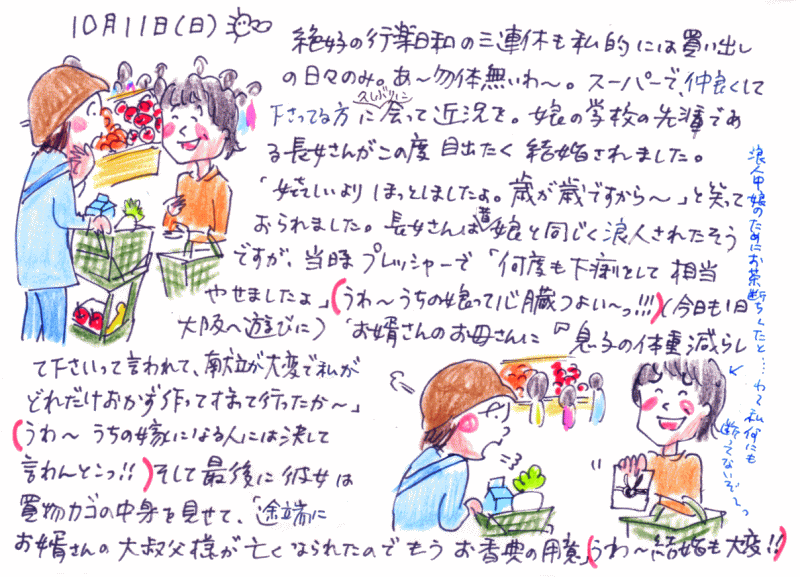 10月11日(日)
絶好の行楽日和の三連休も私的には買い出し
の日々のみ。あ〜勿体無いわ〜。スーパーで、仲良くして
下さってる方に久しぶりに会って近況を。娘の学校の先輩であ
る長女さんがこの度目出たく結婚されました。
「嬉しいよりほっとしましたよ。歳が歳ですから〜」と笑って
おられました。長女さんは昔娘と同じく浪人されたそう
ですが、当時プレッシャーで「何度も下痢をして相当
やせましたよ」(うわ〜うちの娘って心臓つよい〜っ!!!)(今日も1日
大阪へ遊びに)「お婿さんのお母さんに『息子の体重減らし
て下さいって言われて、献立が大変で私が
どれだけおかず作ってすまて行ったか〜」
(うわ〜うちの嫁になる人には決して
言わんとこっ!!)そして最後に彼女は
買物カゴの中身を見せて、「途端に
お婿さんの大叔父様が亡くなられたのでもうお香典の用意」(うわ〜結婚も大変!!)
浪人中娘のためにお茶断ちしたと…わて私何にも
断ってないぞ〜っ